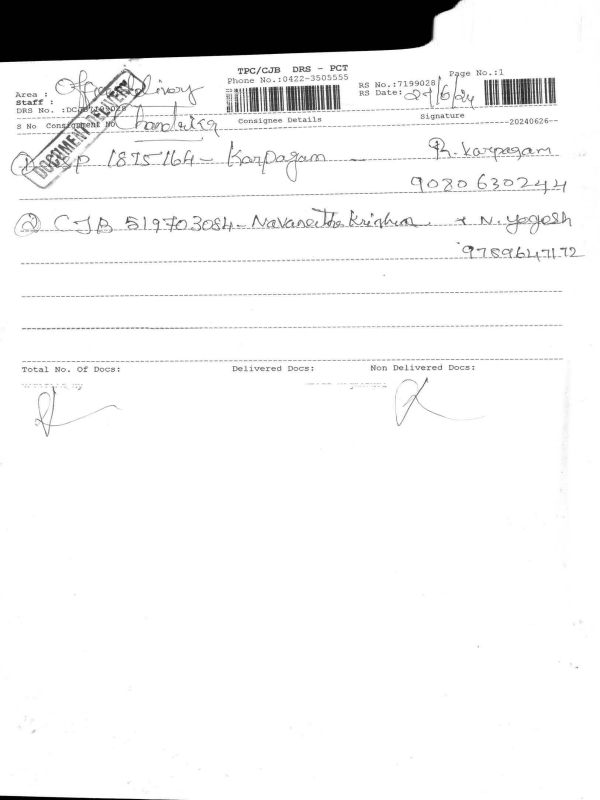 TPC/CJB DRS - PCT
Phone No.:0422-3505555
Page No.:1
RS No.:7199028
Area : Office delivery
RS Date: 29/6/24
Staff : Chandrika
DRS No. :
DOCUMENT DELIVERY
S No Consignment No Consignee Details Signature
20240626
① 1875164 - Karpagam - R. Karpagam
9080630244
② CJB 519703084 - Navaneetha Krishnan N. Yogesh
9789647172
Total No. Of Docs: Delivered Docs: Non Delivered Docs: